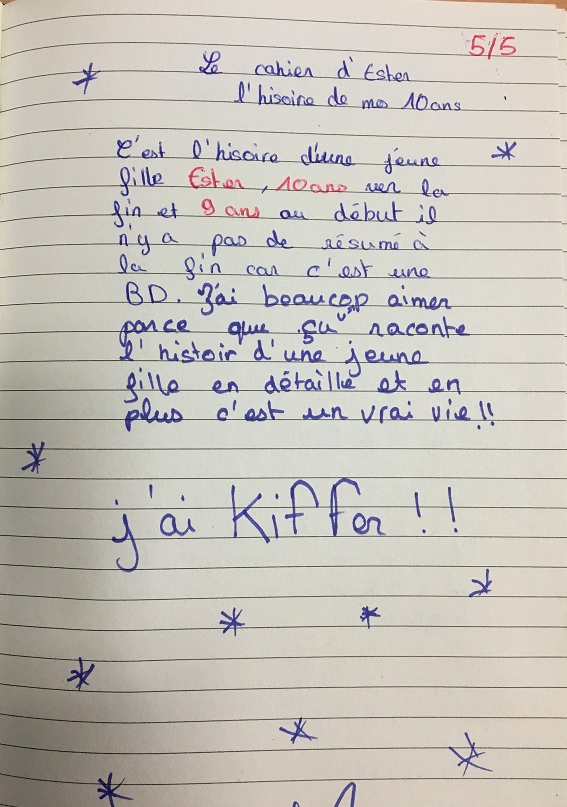 5/5
Le cahier d'Esther
l'hisoire de mes 10ans
C'est l'hisoire d'une jeune
fille Esther, 10ans ver la
fin et 9 ans au début il
n'y a pas de résumé à
la fin car c'est une
BD. J'ai beaucop aimer
parce que ça raconte
l'histoir d'une jeune
fille en détaille et en
plus c'est un vrai vie!!
j'ai Kiffer !!